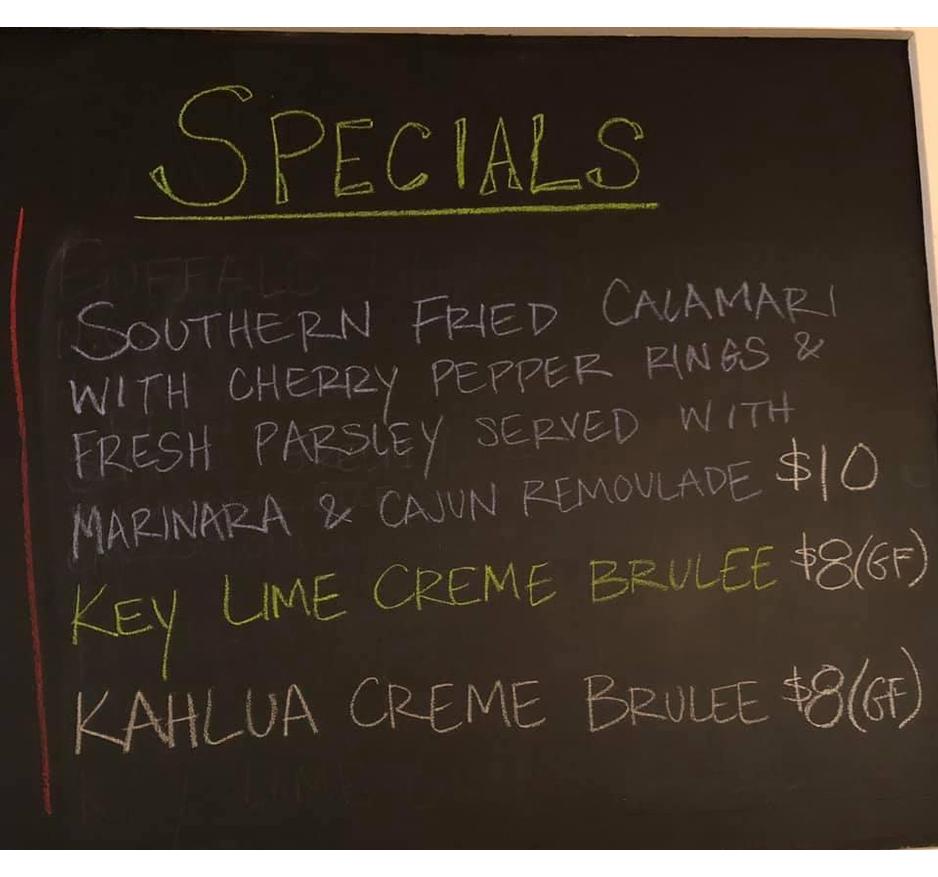 SPECIALS
SOUTHERN FRIED CALAMARI
WITH CHERRY PEPPER RINGS &
FRESH PARSLEY SERVED WITH
MARINARA & CAJUN REMOULADE $10
KEY LIME CREME BRULEE $8(GF)
KAHLUA CREME BRULEE $8(GF)